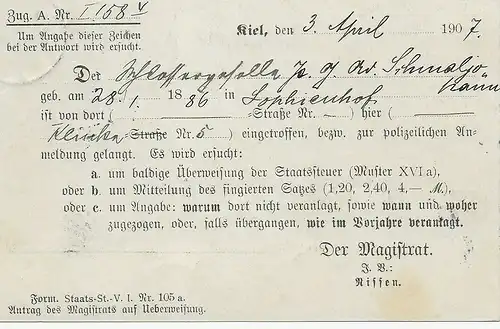 Zug. A. Nr. I 158 4
Um Angabe dieser Zeichen
bei der Antwort wird ersucht.
Kiel, den 3. April 1907.
Der Schlossergeselle
geb. am 28./1. 1886 in Sophienhof
ist von dort ( -Straße Nr. ) hier (
-Straße Nr. 5) eingetroffen, bezw. zur polizeilichen An-
meldung gelangt. Es wird ersucht:
a. um baldige Überweisung der Staatssteuer (Muster XVI a),
oder b. um Mitteilung des fingierten Satzes (1,20, 2,40, 4,— M.),
oder c. um Angabe: warum dort nicht veranlagt, sowie wann und woher
zugezogen, oder, falls übergangen, wie im Vorjahre veranlagt.
Der Magistrat.
J. V.:
Nissen.
Form. Staats-St.-V. I. Nr. 105 a.
Antrag des Magistrats auf Ueberweisung.